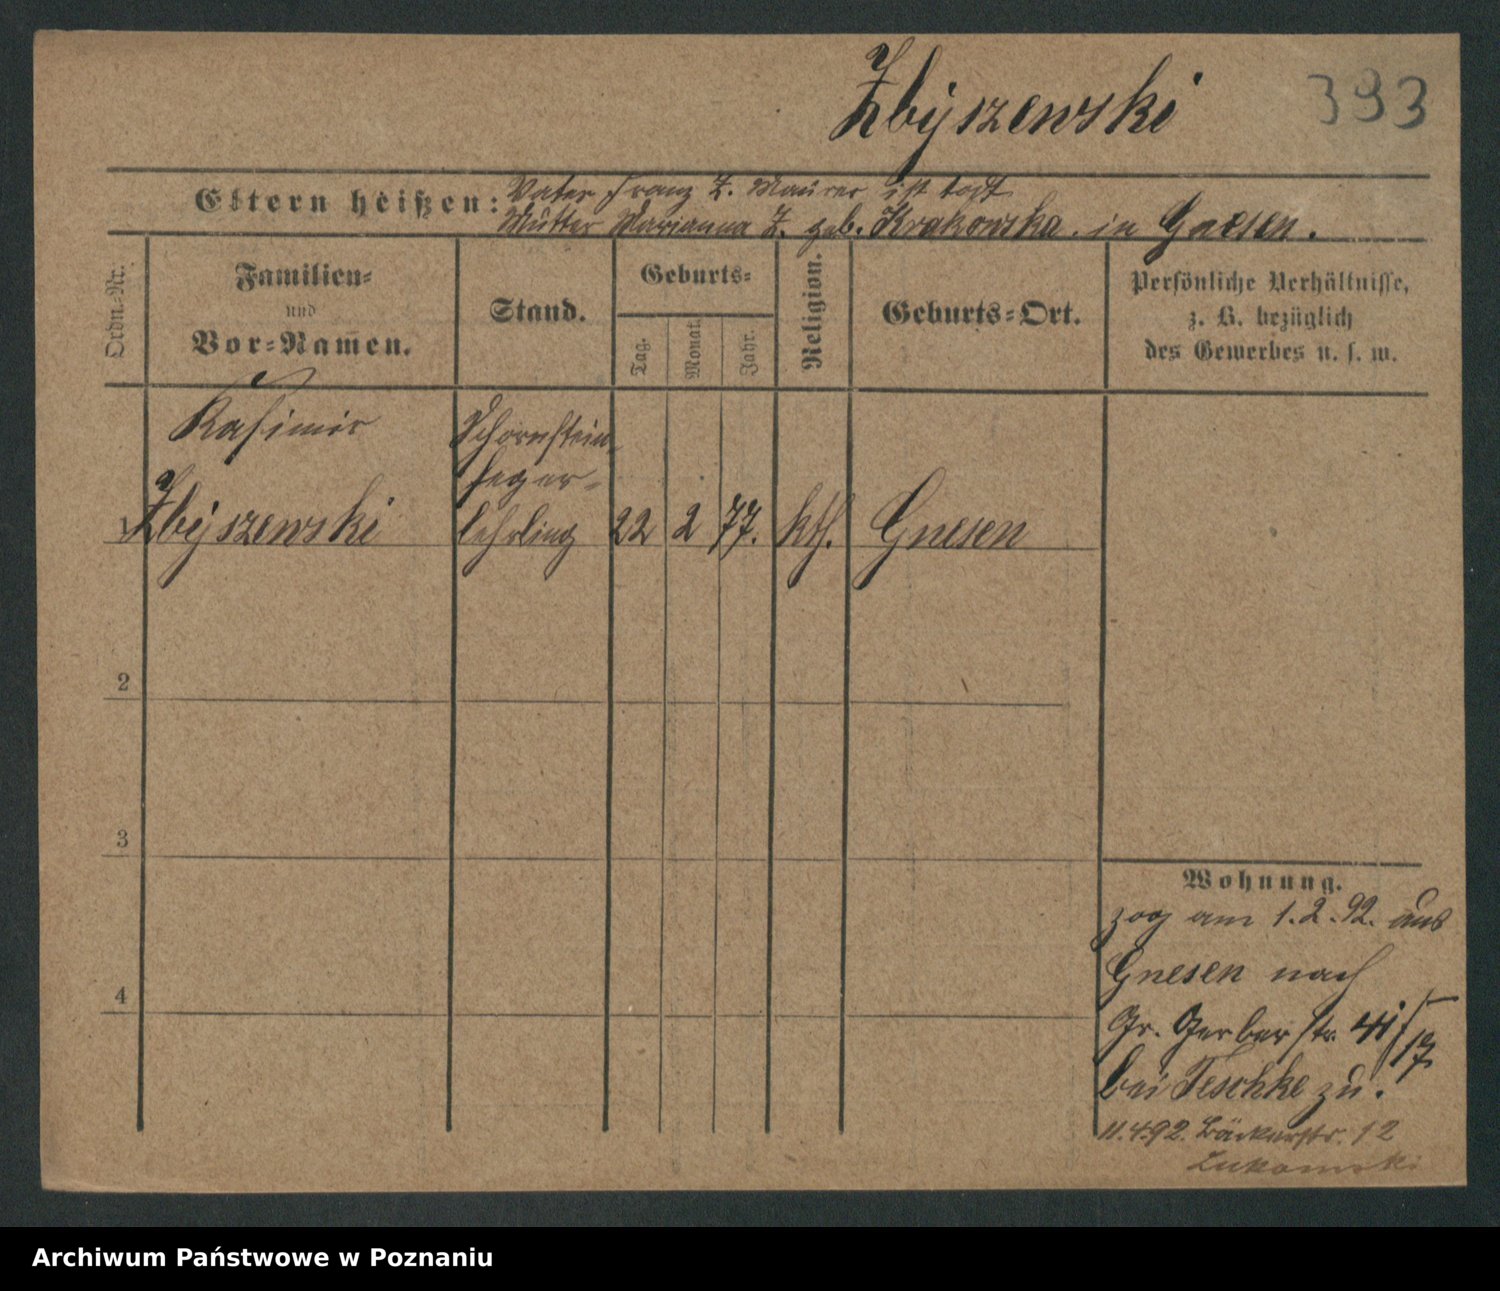 Zbyszewski
393
Eltern heißen: Vater Franz Z. Maurer ist todt
Mutter Marianna Z. geb. Krakowska. in Gnesen.
Ordn.-Nr.
Familien-
und
Vor-Namen.
Stand.
Geburts-
Tag.
Monat.
Jahr.
Religion.
Geburts-Ort.
Persönliche Verhältnisse,
z. B. bezüglich
des Gewerbes u. s. w.
Kasimir
Schornstein-
feger-
1 Zbyszewski lehrling 22 2 77. kth. Gnesen
2
3
4
Wohnung.
zog am 1.2.92. aus
Gnesen nach
Gr. Gerberstr. 41
bei Teschke zu.
11.4.92. Bäckerstr. 12
Lukomski
Archiwum Państwowe w Poznaniu